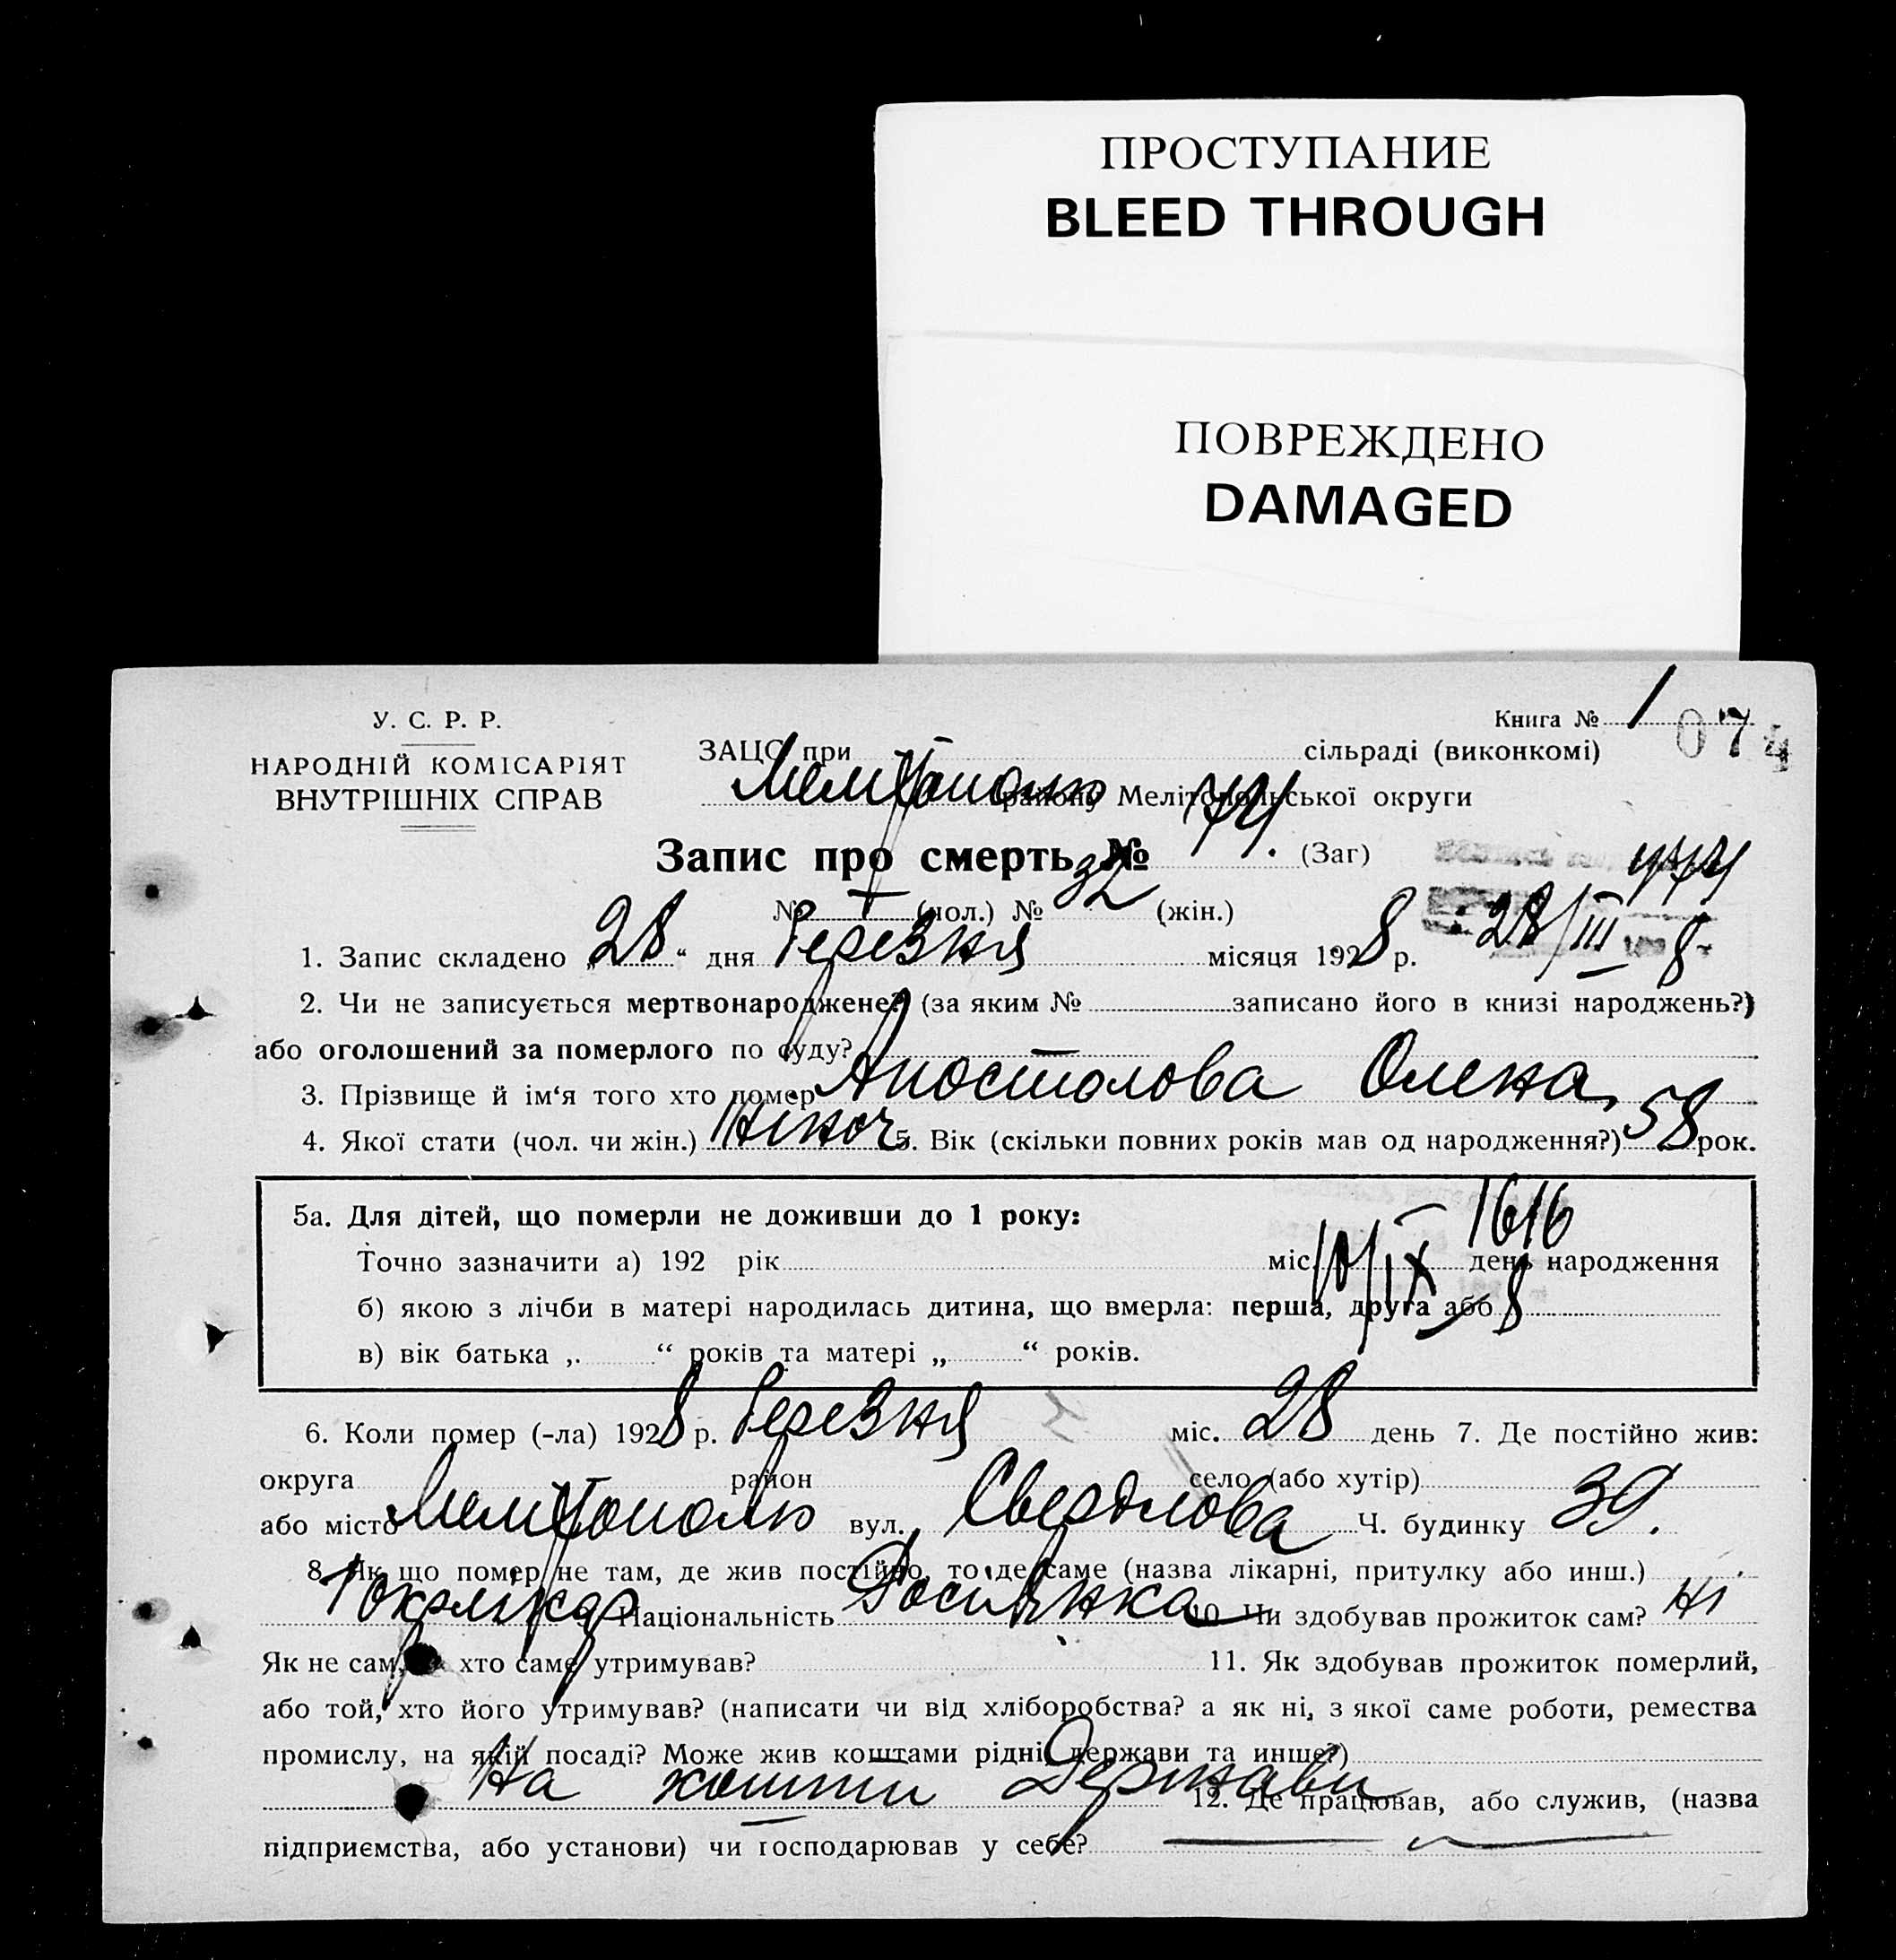 ПРОСТУПАНИЕ
BLEED THROUGH
ПОВРЕЖДЕНО
DAMAGED
У. С. Р. Р.
НАРОДНІЙ КОМІСАРІЯТ
ВНУТРІШНІХ СПРАВ
Книга № 1
074
ЗАЦС при сільраді (виконкомі)
Мелітополь району Мелітопольської округи
Запис про смерть № 74. (Заг)
474
№ (чол.) № 32 (жін.)
28/III 8
1. Запис складено „28“ дня березня місяця 1928 р.
2. Чи не записується мертвонароджене? (за яким № записано його в книзі народжень?)
або оголошений за померлого по суду? —
3. Прізвище й ім‘я того хто помер Апостолова Олена
4. Якої стати (чол. чи жін.) жіноч 5. Вік (скільки повних років мав од народження?) 58 рок.
5а. Для дітей, що померли не доживши до 1 року:
1616
Точно зазначити а) 192 рік міс. день народження
б) якою з лічби в матері народилась дитина, що вмерла: перша, друга або
в) вік батька „ “ років та матері „ “ років.
6. Коли помер (-ла) 1928 р. березня міс. 28 день 7. Де постійно жив:
округа район село (або хутір)
або місто Мелітополь вул. Свердлова Ч. будинку 39.
8. Як що помер не там, де жив постійно, то де саме (назва лікарні, притулку або инш.)
Національність 10. Чи здобував прожиток сам? ні
Як не сам, хто саме утримував? 11. Як здобував прожиток померлий,
або той, хто його утримував? (написати чи від хліборобства? а як ні, з якої саме роботи, ремества
промислу, на якій посаді? Може жив коштами рідні, держави та инше?)
На кошти Держави 12. Де працював, або служив, (назва
підприємства, або установи) чи господарював у себе? —